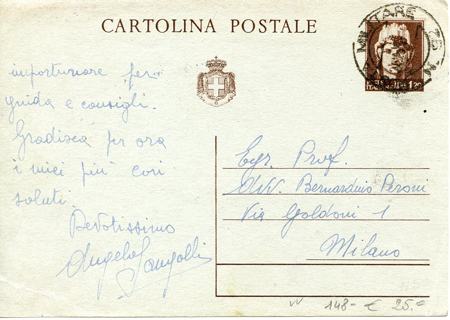 CARTOLINA POSTALE
MILITARE
1,20
importunare per
guida e consigli.
Gradisca per ora
i miei più cari
saluti
Devotissimo
Angelo Sangalli
Egr. Prof.
Avv. Bernardino Peroni
Via Goldoni 1
Milano
148- € 25.=